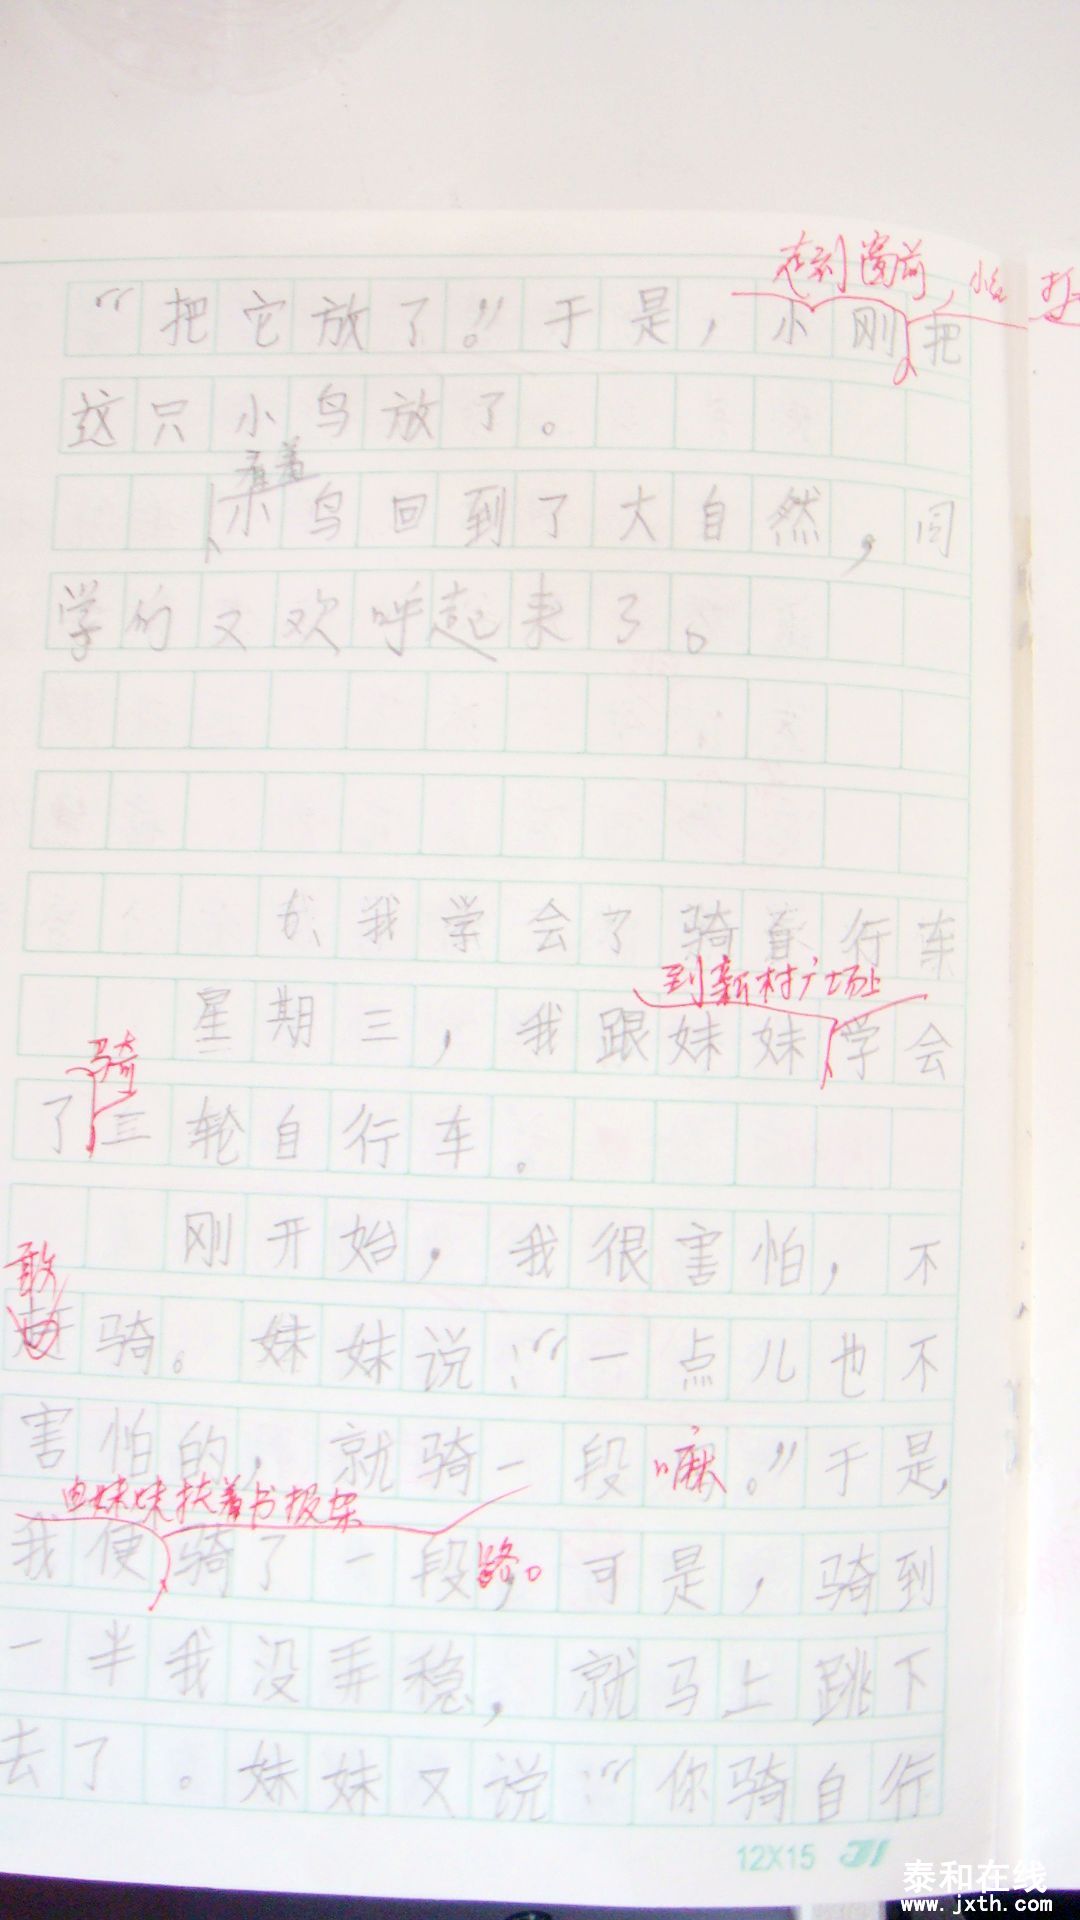 走到窗前，小心
“把它放了。”于是，小刚把
这只小鸟放了。
看着
小鸟回到了大自然，同
学们又欢呼起来了。
6、我学会了骑自行车
到新村广场上
星期三，我跟妹妹学会
骑
了三轮自行车。
刚开始，我很害怕，不
敢
赶骑。妹妹说：“一点儿也不
害怕的，就骑一段嘛。”于是，
由妹妹扶着书报架
我便骑了一段路。可是，骑到
一半我没弄稳，就马上跳下
去了。妹妹又说：“你骑自行
12X15
泰和在线
www.jxth.com